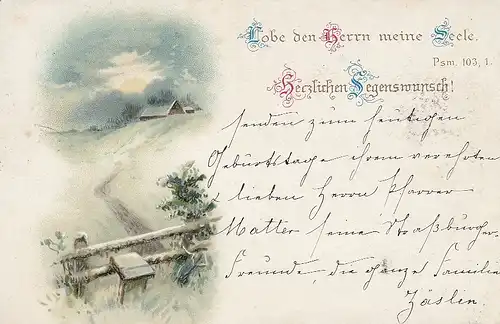 Lobe den Herrn meine Seele.
Psm. 103, 1.
Herzlichen Segenswunsch!
senden zum heutigen
Geburtstage ihrem verehrten
lieben Herrn Pfarrer
Matter seine Straßburger
Freunde, die ganze Familie
Zäslin.